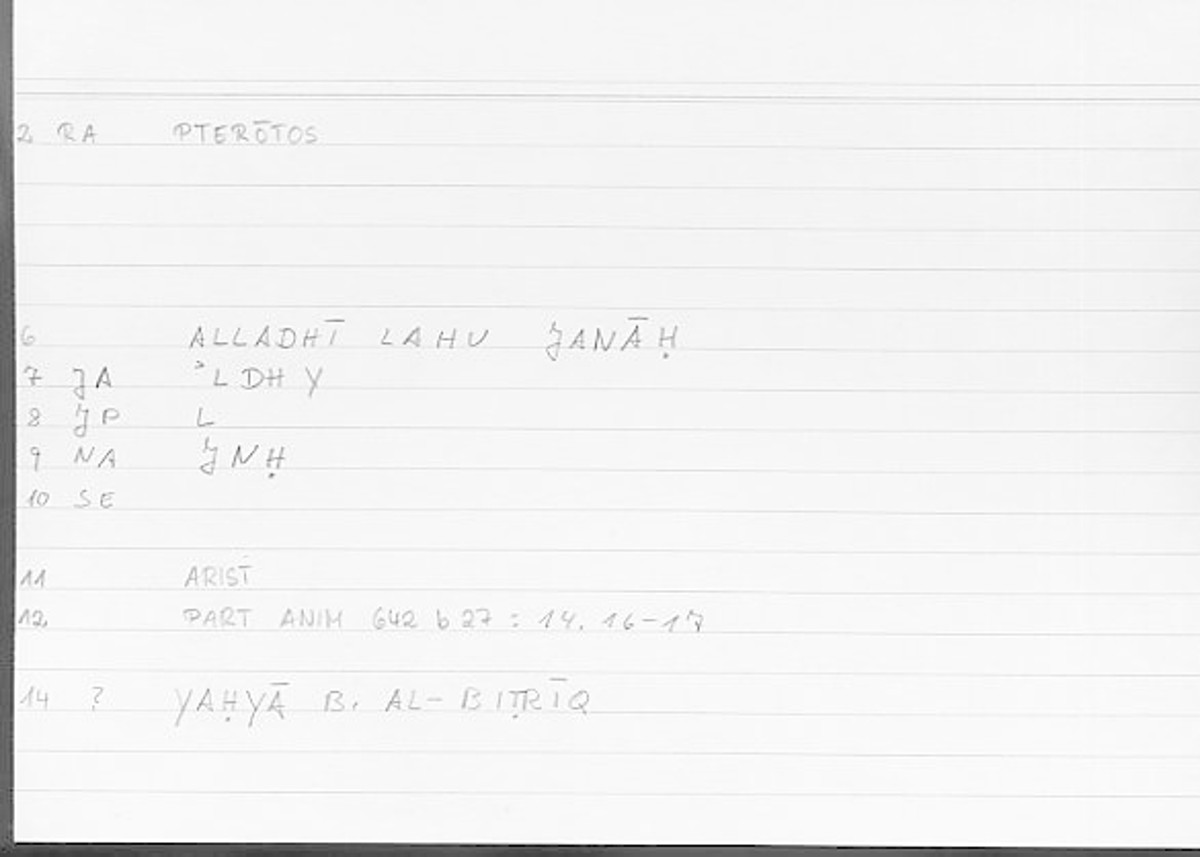 2 RA PTERŌTOS
6 ALLADHĪ LAHU JANĀḤ
7 JA ʾLDHY
8 JP L
9 NA JNḤ
10 SE
11 ARIST
12 PART ANIM 642 b 27 : 14. 16-17
14 ? YAḤYĀ B. AL-BIṬRĪQ